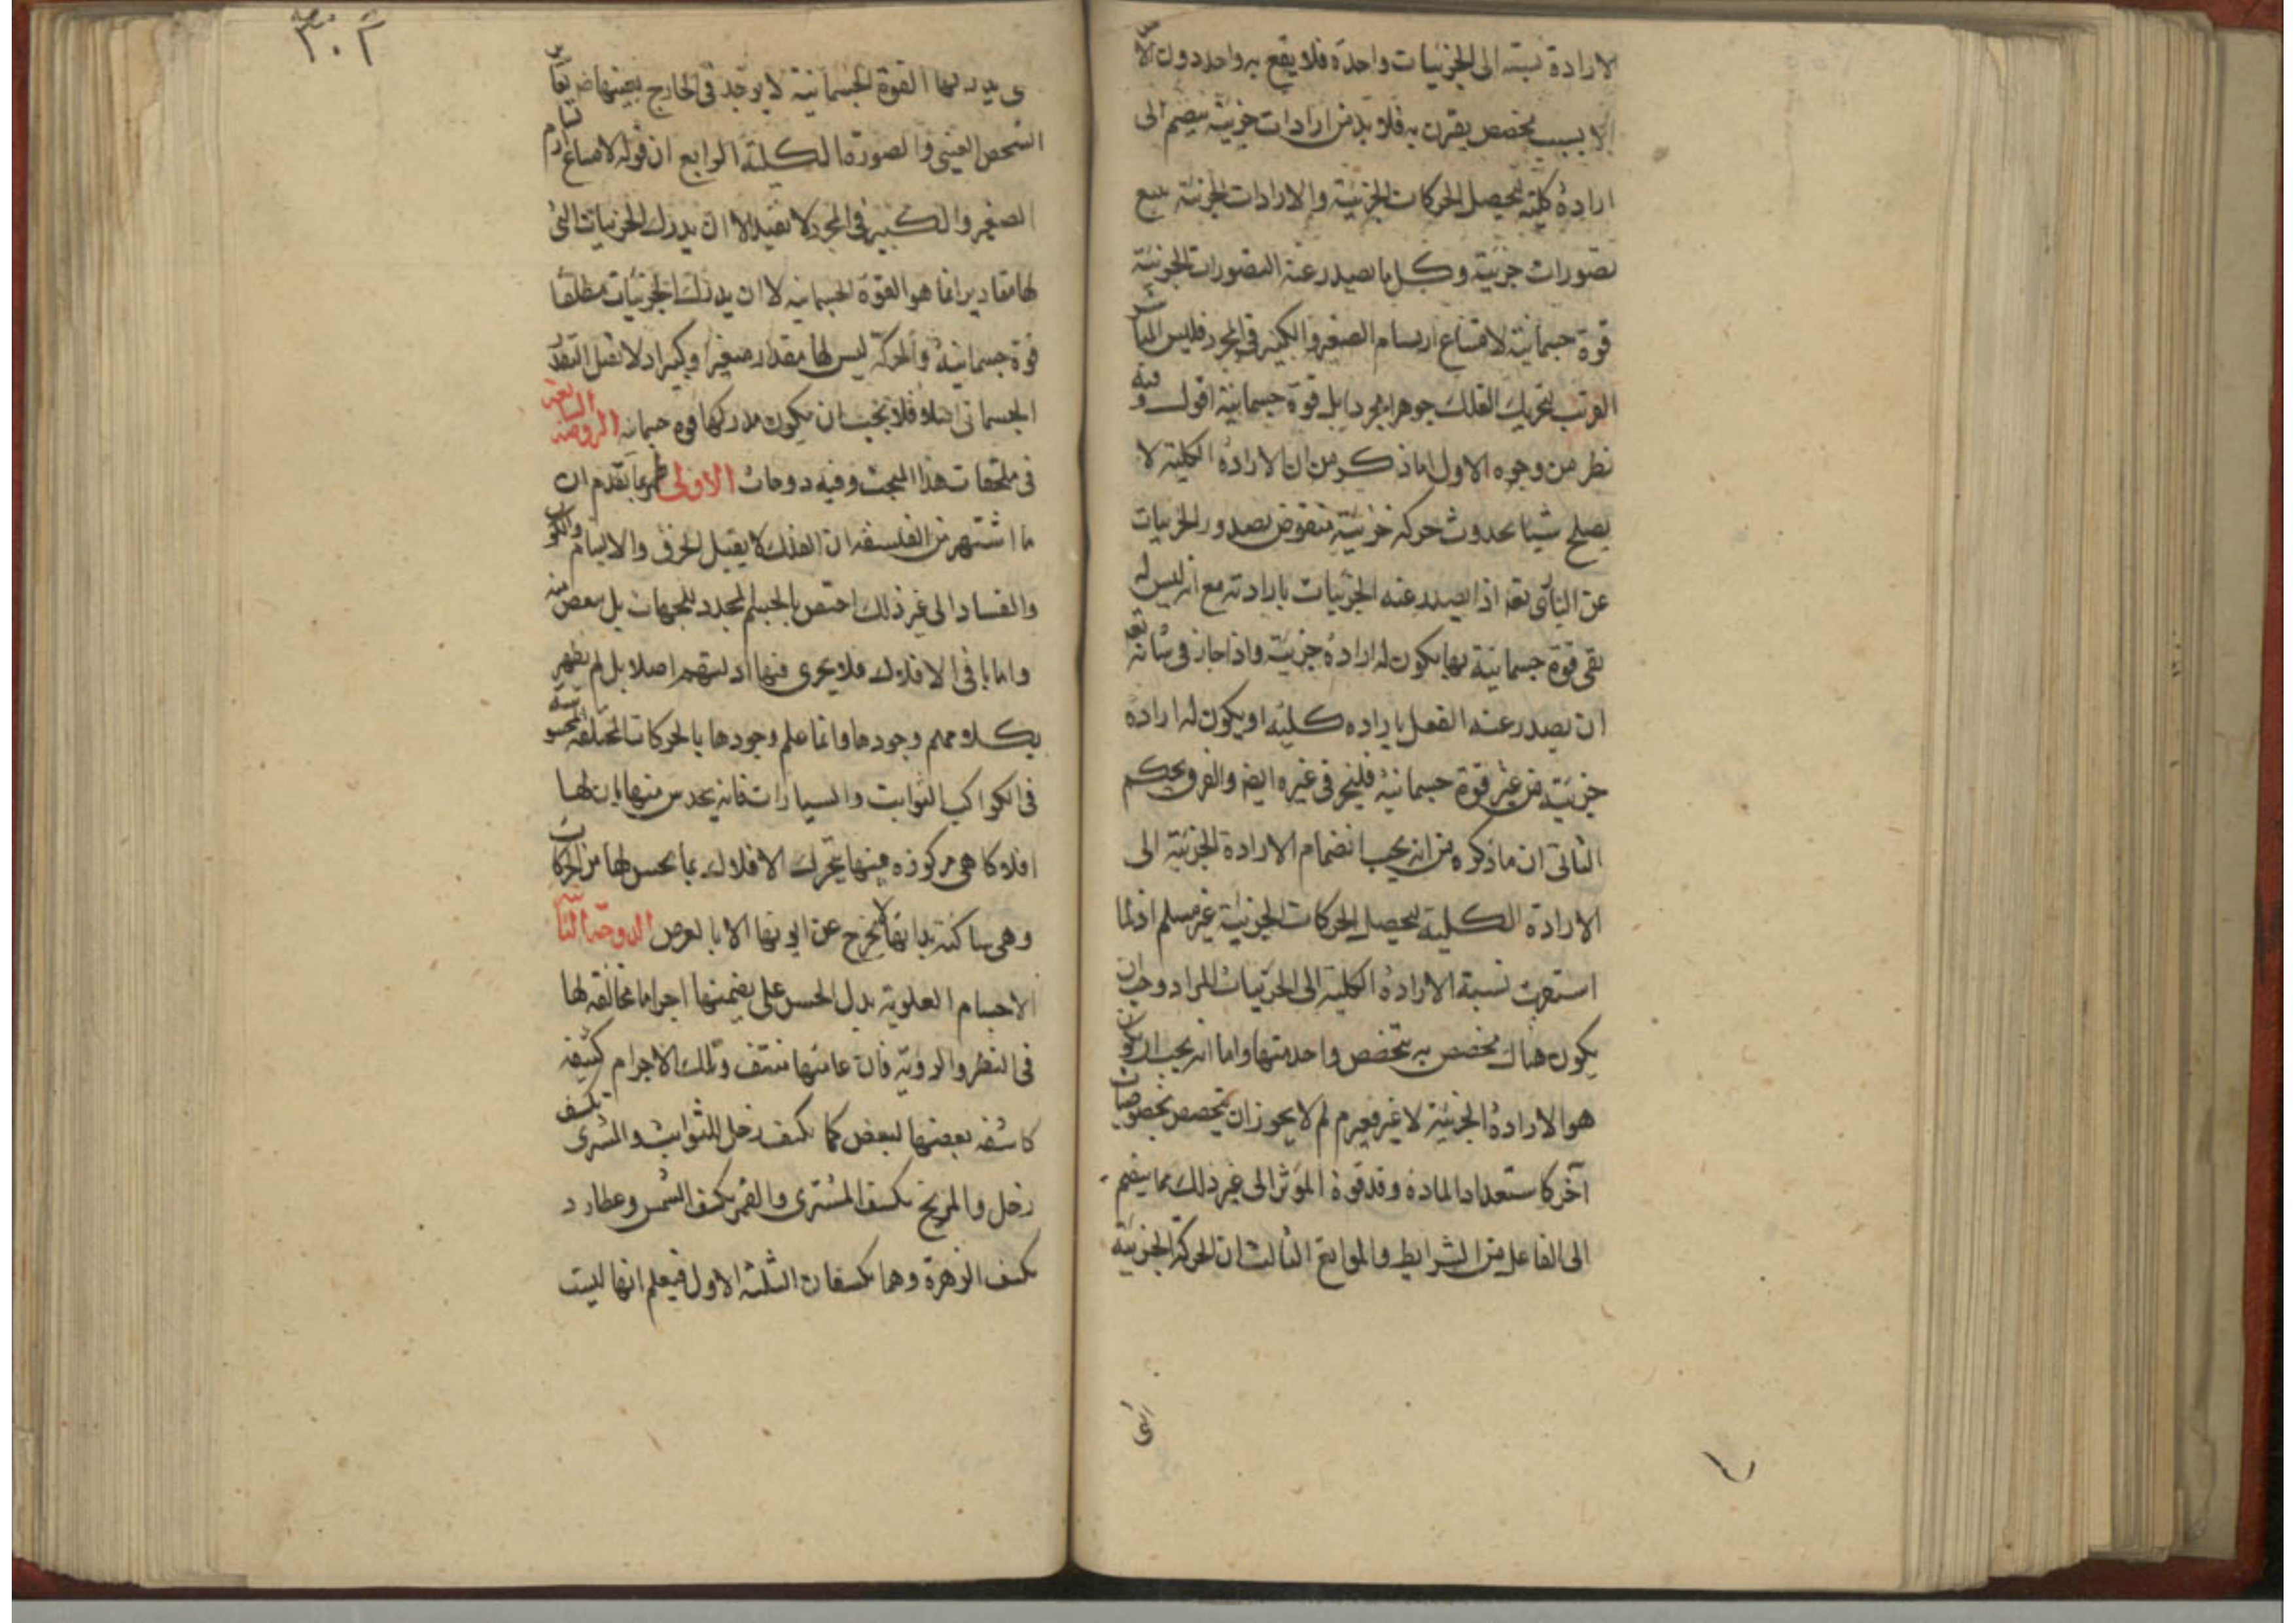 الارادة نسبته الى الجزئيات واحدة فلا يقع به واحد دون الآخر
الا بسبب مخصص يقترن به فلا بد من ارادات جزئية ينضم الى
ارادة كلية ليحصل الحركات الجزئية والارادات الجزئية تتبع
تصورات جزئية وكل ما يصدر عنه التصورات الجزئية
قوة جسمانية لامتناع ارتسام الصغير والكبير في المجرد فليس المباشر
القريب لتحريك الفلك جوهرا مجردا بل قوة جسمانية اقول وفيه
نظر من وجوه الاول ما ذكر من ان الارادة الكلية لا
يصلح سببا لحدوث حركة جزئية منقوض بصدور الجزئيات
عن البارى تعه اذ يصدر عنه الجزئيات بارادته مع انه ليس له
تعه قوة جسمانية بها يكون له ارادة جزئية واذا جاز في شانه تعه
ان يصدر عنه الفعل بارادة كلية او يكون له ارادة
جزئية من غير قوة جسمانية فليجز في غيره ايضا والفرق تحكم
الثاني ان ما ذكره من انه يجب انضمام الارادة الجزئية الى
الارادة الكلية ليحصل الحركات الجزئية غير مسلم اذ لما
استوت نسبة الارادة الكلية الى الجزئيات المراد وجب ان
يكون هناك مخصص به يتخصص واحد منها واما انه يجب ان يكون
هو الارادة الجزئية لا غير فغير م لم لا يجوز ان يتخصص بخصوصيات
آخر كاستعداد المادة وقد قوة المؤثر الى غير ذلك مما ينضم
الى الفاعل من الشرايط والموانع الثالث ان الحركة الجزئية
٣٠٢
القوة الجسمانية لا يوجد في الخارج بعينها ضر يغاير
الشخص العيني والصورة الكلية الرابع ان قوله لامتناع ارتسام
الصغير والكبير في المجرد لا يفيد الا ان يدرك الجزئيات التي
لها مقادير انما هو القوة الجسمانية لا ان يدرك الجزئيات مطلقا
قوة جسمانية والحركة ليس لها مقدار صغيرا وكبيرا ولا تقبل التقدر
الجسماني اصلا فلا يجب ان يكون مدركها قوة جسمانية الروضة السابعة
في ملحقات هذا المبحث وفيه دوحات الاولى ظهر بما تقدم ان
ما اشتهر من الفلسفة ان الفلك لا يقبل الخرق والالتيام والكون
والفساد الى غير ذلك اختص بالجسم المحدد للجهات بل ببعض منه
واما باقي الافلاك فلا يجرى فيها ادلتهم اصلا بل لم يظهر
بكلامهم وجودها وانما علم وجودها بالحركات المختلفة المحسوسة
في الكواكب الثوابت والسيارات فانه يحدس منها بان لها
افلاكا هي مركوزة فيها يتحرك الافلاك بما يحس لها من الحركات
وهي ساكنة بذاتها لا يخرج عن ايونها الا بالعرض الدوحة الثانية
الاجسام العلوية يدل الحس على تضمنها اجراما مخالفة لها
في النظر والروية فان عامتها مشف وتلك الاجرام كثيفة
كاشفة بعضها لبعض كما يكسف زحل الثوابت والمشترى يكسف
زحل والمريخ يكسف المشترى والقمر يكسف الشمس وعطارد
يكسف الزهرة وهما يكسفان الثلثة الاول فيعلم انها ليست